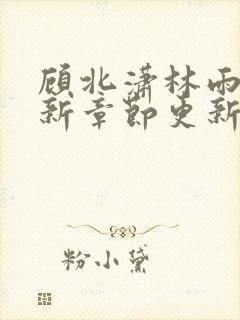 顾北潇林雨
新章节更新
粉小黛